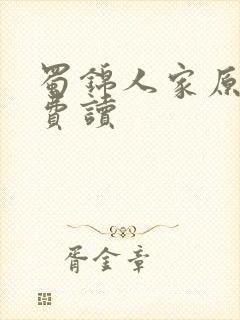 蜀錦人家原
費讀
胥金章